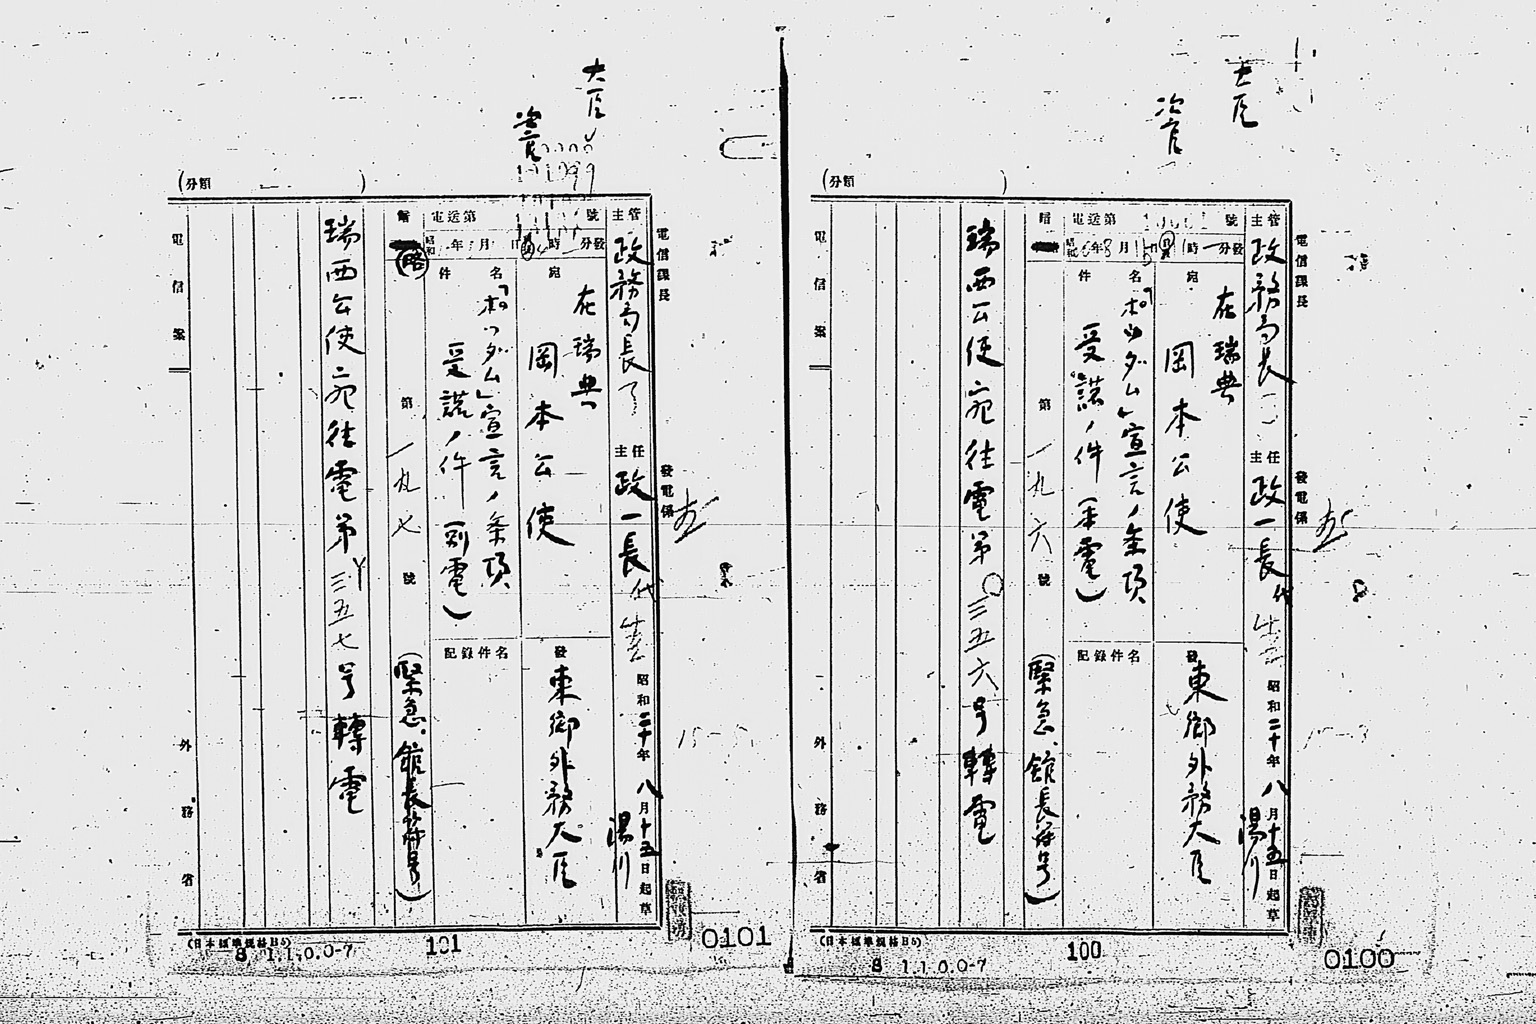 大臣
次官
(分類 )
電信課長
發電係
主管 政務局長
主任 政一長代
昭和二十年八月十五日起草
湯川
電送第 號
昭和 年8月15日 時 分發
暗
宛
在瑞典
岡本公使
發
東郷外務大臣
件名
「ポツダム」宣言ノ条項
受諾ノ件(本電)
記録件名
第一九六號
(緊急、館長符号)
瑞西公使宛往電第三五六号轉電
電信案
外務省
(日本標準規格B5)
8 1.1.0.0-7
100
0100
大臣
次官
(分類 )
電信課長
發電係
主管 政務局長
主任 政一長代
昭和二十年八月十五日起草
湯川
電送第 號
昭和 年 月 日 時 分發
暗
略
宛
在瑞典
岡本公使
發
東郷外務大臣
件名
「ポツダム」宣言ノ条項
受諾ノ件(別電)
記録件名
第一九七號
(緊急、館長符号)
瑞西公使宛往電第三五七号轉電
電信案
外務省
(日本標準規格B5)
8 1.1.0.0-7
101
0101